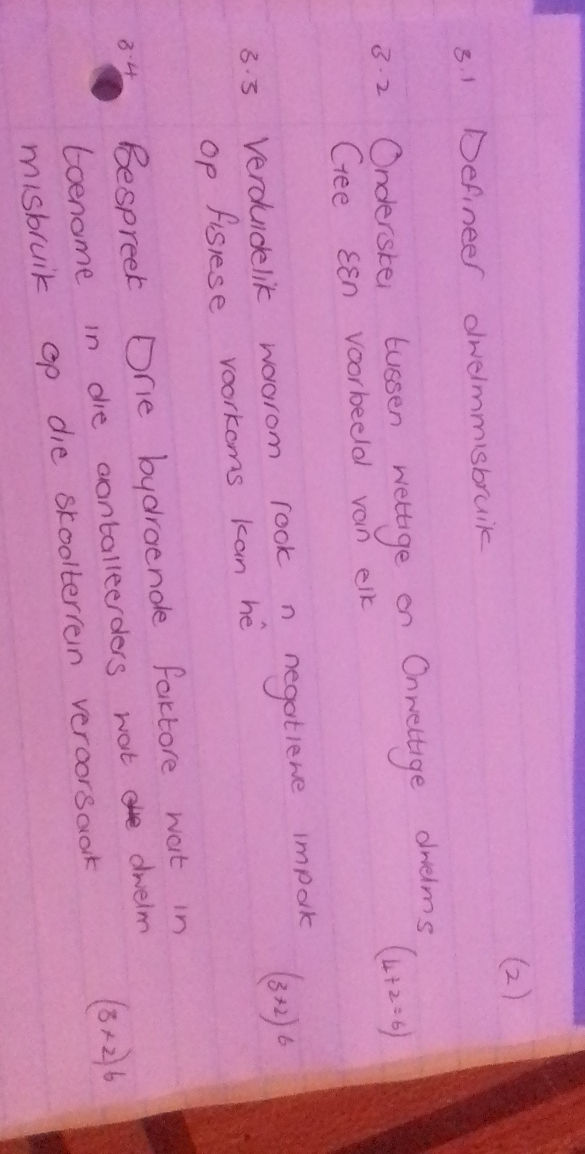 3.1 Defineer dwelmmisbruik (2)
3.2 Onderskei tussen wettige en Onwettige dwelms
Gee een voorbeeld van elk (4+2=6)
3.3 Verduidelik waarom rook n negatiewe impak
op fisiese voorkoms kan hê (3x2) 6
3.4 Bespreek Drie bydraende faktore wat in
toename in die aantalleerders wat dwelm
misbruik op die skoolterrein veroorsaak (3x2) 6